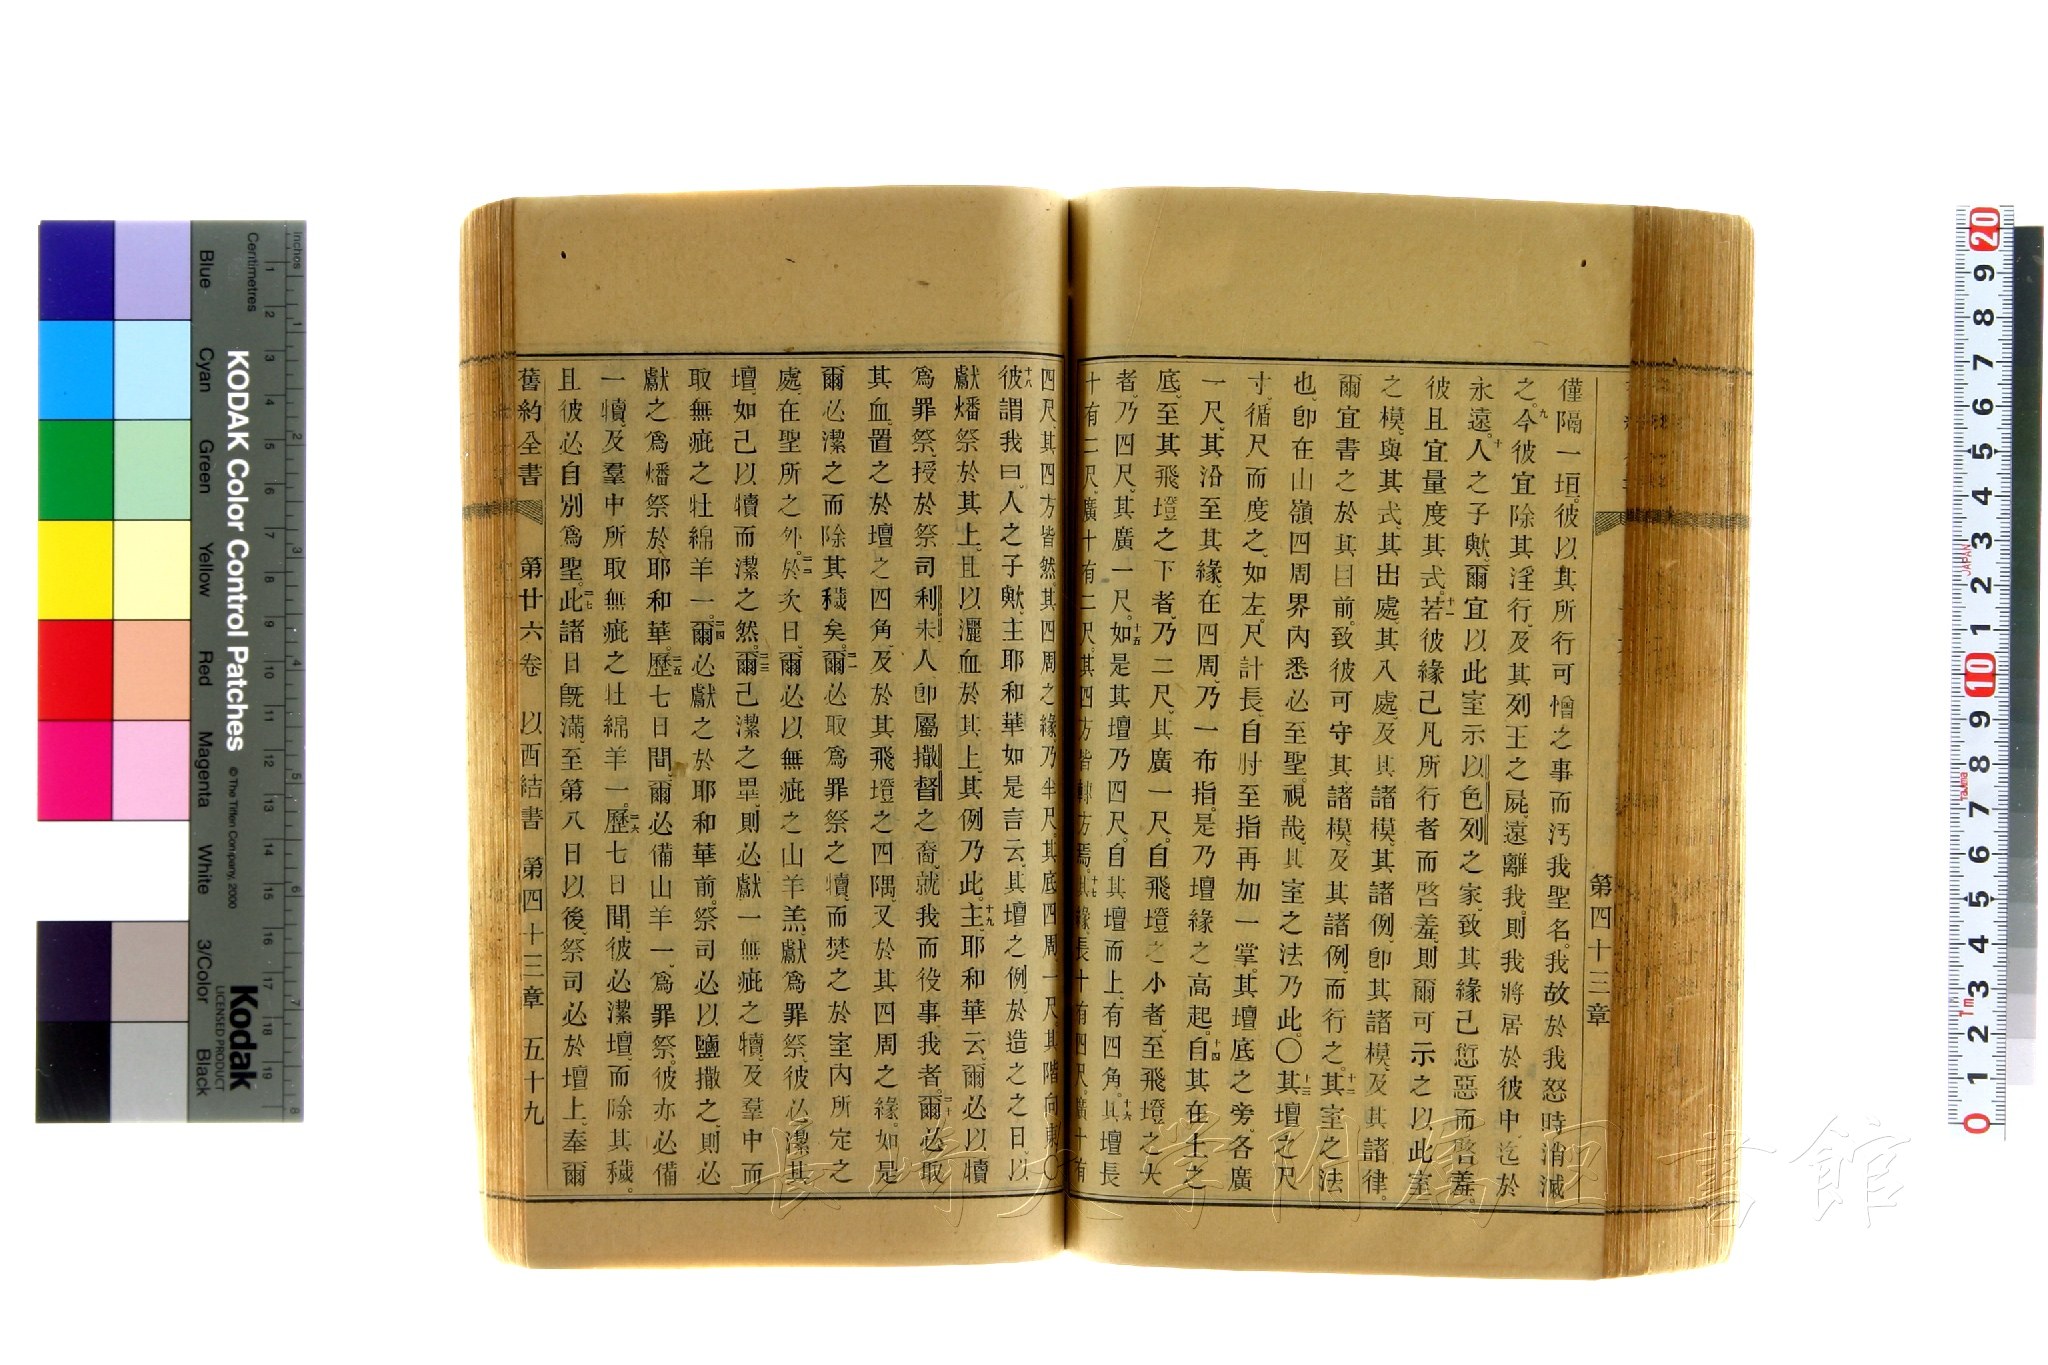 第四十三章
僅隔一垣。彼以其所行可憎之事而汚我聖名。我故於我怒時消滅
之。九今彼宜除其淫行、及其列王之屍、遠離我、則我將居於彼中、迄於
永遠。十人之子歟、爾宜以此室示以色列之家、致其緣己愆惡而啓羞。
彼且宜量度其式。十一若彼緣己凡所行者而啓羞、則爾可示之以此室
之模、與其式、其出處、其入處、及其諸模、其諸例、卽其諸模、及其諸律。
爾宜書之於其目前。致彼可守其諸模、及其諸例、而行之。十二其室之法
也、卽在山嶺四周界內悉必至聖。視哉、其室之法乃此。〇十三其壇之尺
寸、循尺而度之、如左。尺計長、自肘至指再加一掌。其壇底之旁、各廣
一尺、其沿至其緣、在四周、乃一布指。是乃壇緣之高起。十四自其在土之
底、至其飛墱之下者、乃二尺、其廣一尺。自飛墱之小者、至飛墱之大
者、乃四尺、其廣一尺。十五如是其壇乃四尺。自其壇而上、有四角。十六其壇長
十有二尺、廣十有二尺、其四方皆隷方焉。十七其緣、長十有四尺、廣十有
四尺、其四方皆然。其四周之緣、乃半尺、其底四周一尺。其階向東。〇
十八彼謂我曰、人之子歟、主耶和華如是言云、其壇之例、於造之之日、以
獻燔祭於其上。且以灑血於其上、其例乃此。十九主耶和華云、爾必以犢
爲罪祭、授於祭司利未人卽屬撒督之裔、就我而役事我者。二十爾必取
其血、置之於壇之四角、及於其飛墱之四隅、又於其四周之緣。如是
爾必潔之而除其穢矣。二一爾必取爲罪祭之犢、而焚之於室內所定之
處、在聖所之外。二二於次日、爾必以無疵之山羊羔、獻爲罪祭、彼必潔其
壇、如己以犢而潔之然。二三爾己潔之畢、則必獻一無疵之犢、及羣中而
取無疵之牡綿羊一。二四爾必獻之於耶和華前。祭司必以鹽撒之、則必
獻之爲燔祭於耶和華。二五歷七日間、爾必備山羊一、爲罪祭。彼亦必備
一犢、及羣中所取無疵之牡綿羊一。二六歷七日間、彼必潔壇、而除其穢。
且彼必自別爲聖。二七此諸日旣滿、至第八日以後、祭司必於壇上、奉爾
舊約全書 第廿六卷 以西結書 第四十三章 五十九
KODAK Color Control Patches
© The Tiffen Company, 2000
Kodak
LICENSED PRODUCT
Inches
Centimetres
Blue
Cyan
Green
Yellow
Red
Magenta
White
3/Color
Black
JAPAN
Tajima
7m
長崎大学附属図書館